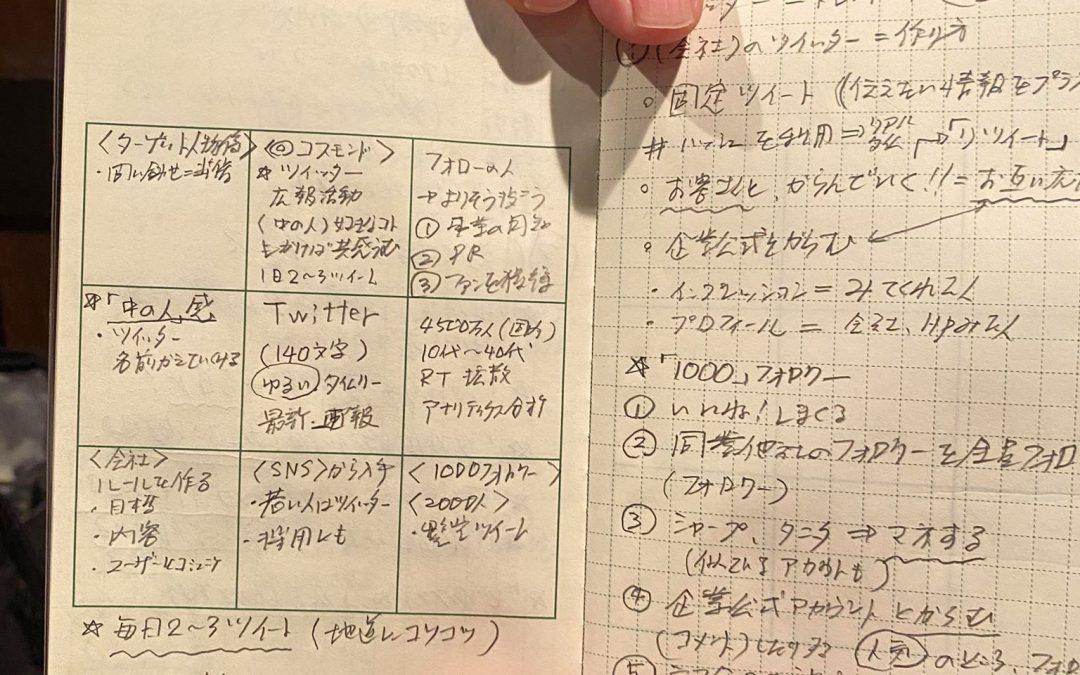 <ターゲット人物像>
・問い合せ=
<@コスモンド>
☆ツイッター
広報活動
(中の人)好きなコト
をかけば共感
1日2〜3ツイート
フォローの人
→よりそう
① 企業の
② PR
③ ファンを獲得
☆「中の人」感
・ツイッター
名前かえていくる
Twitter
(140文字)
ゆるい タイムリー
最新
4500万人(国内)
10代〜40代
RT 拡散
アナリティクス分析
<会社>
ルールを作る
・目標
・内容
・ユーザーとコミュニケ
<SNS>から入手
・若い人はツイッター
・採用しも
<1000フォロワー>
<2000人>
ツイート
☆毎日2〜3ツイート (地道にコツコツ)
① (会社)のツイッター=作り方
○ 固定ツイート (伝えたい情報をプラ
# ハッシュを利用⇒ 「リツイート」
○ お客さんと、からんでいく!!=お互い
○ 企業公式をからむ
・インプレッション=みてくれた人
・プロフィール= 会社、HPみた人
☆「1000」フォロワー
① いいね!しまくる
② 同業他社のフォロワーを全員フォロ
(フォロワー)
③ シャープ、タニタ⇒マネする
(似ているアカウントも)
④ 企業公式アカウントとからむ
(コメント)したりする 人気のところ、フォロ
⑤